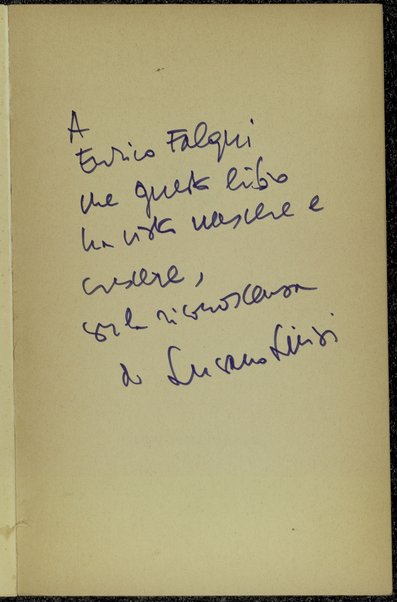 A
Enrico Falqui
che questo libro
ha visto nascere e
crescere,
con la riconoscenza
di Luciano Luisi